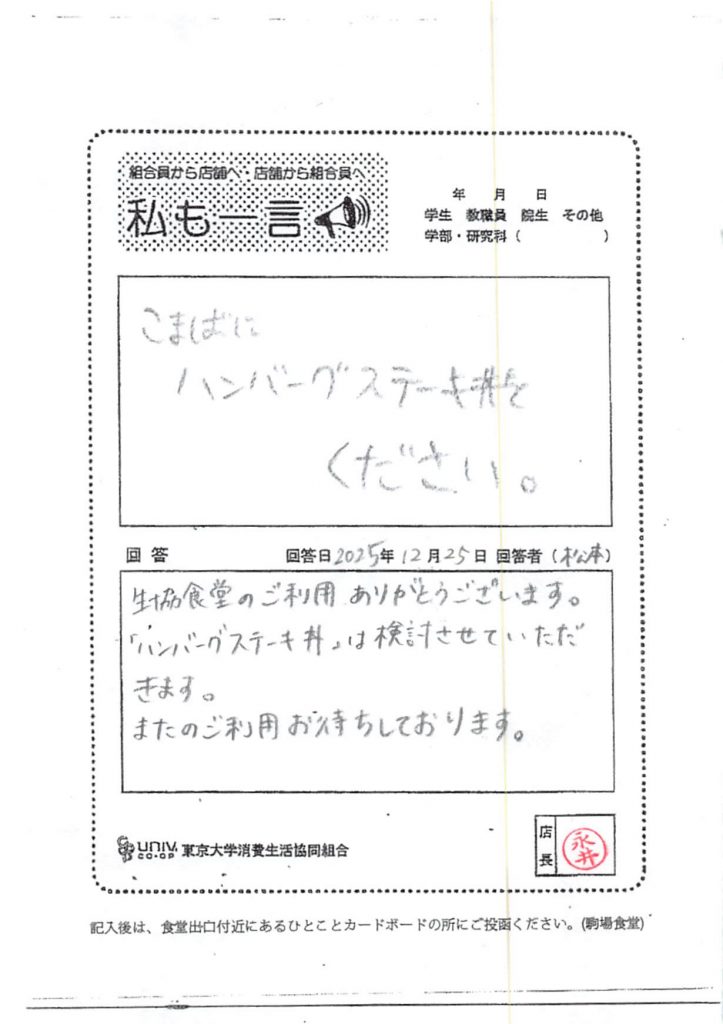 組合員から店舗へ・店舗から組合員へ
私も一言
年 月 日
学生 教職員 院生 その他
学部・研究科 ( )
こまばに
ハンバーグステーキ丼を
ください。
回答 回答日 2025年 12月 25日 回答者 (松本)
生協食堂のご利用 ありがとうございます。
「ハンバーグステーキ丼」は検討させていただ
きます。
またのご利用 お待ちしております。
UNIV. CO-OP 東京大学消費生活協同組合
店長
永井
記入後は、食堂出口付近にあるひとことカードボードの所にご投函ください。(駒場食堂)